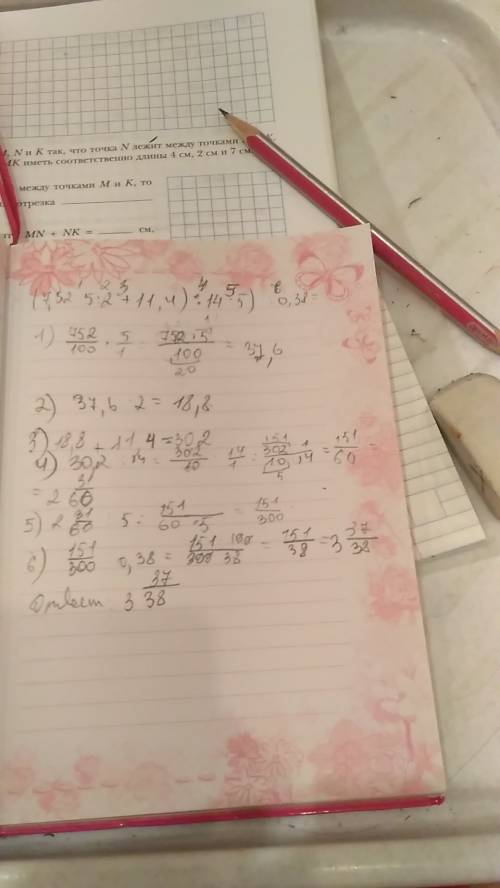 N и K так, что точка N лежит между точками
MK иметь соответственно длины 4 см, 2 см и 7 см
между точками M и K, то
отрезка
MN + NK = ______ см,
(7,52 5:2 + 11,4) : 14 : 5) 0,38 =
1) 752/100 · 5/1 = 752·5/100 = 37,6
2) 37,6 : 2 = 18,8
3) 18,8 + 11,4 = 30,2
4) 30,2 : 14 = 302/10 : 14/1 = 302·1/10·14 = 151/60 =
= 2 31/60
5) 2 31/60 5 = 151/60·5 = 151/300
6) 151/300 0,38 = 151 100/300 38 = 151/38 = 3 37/38
Ответ 3 37/38